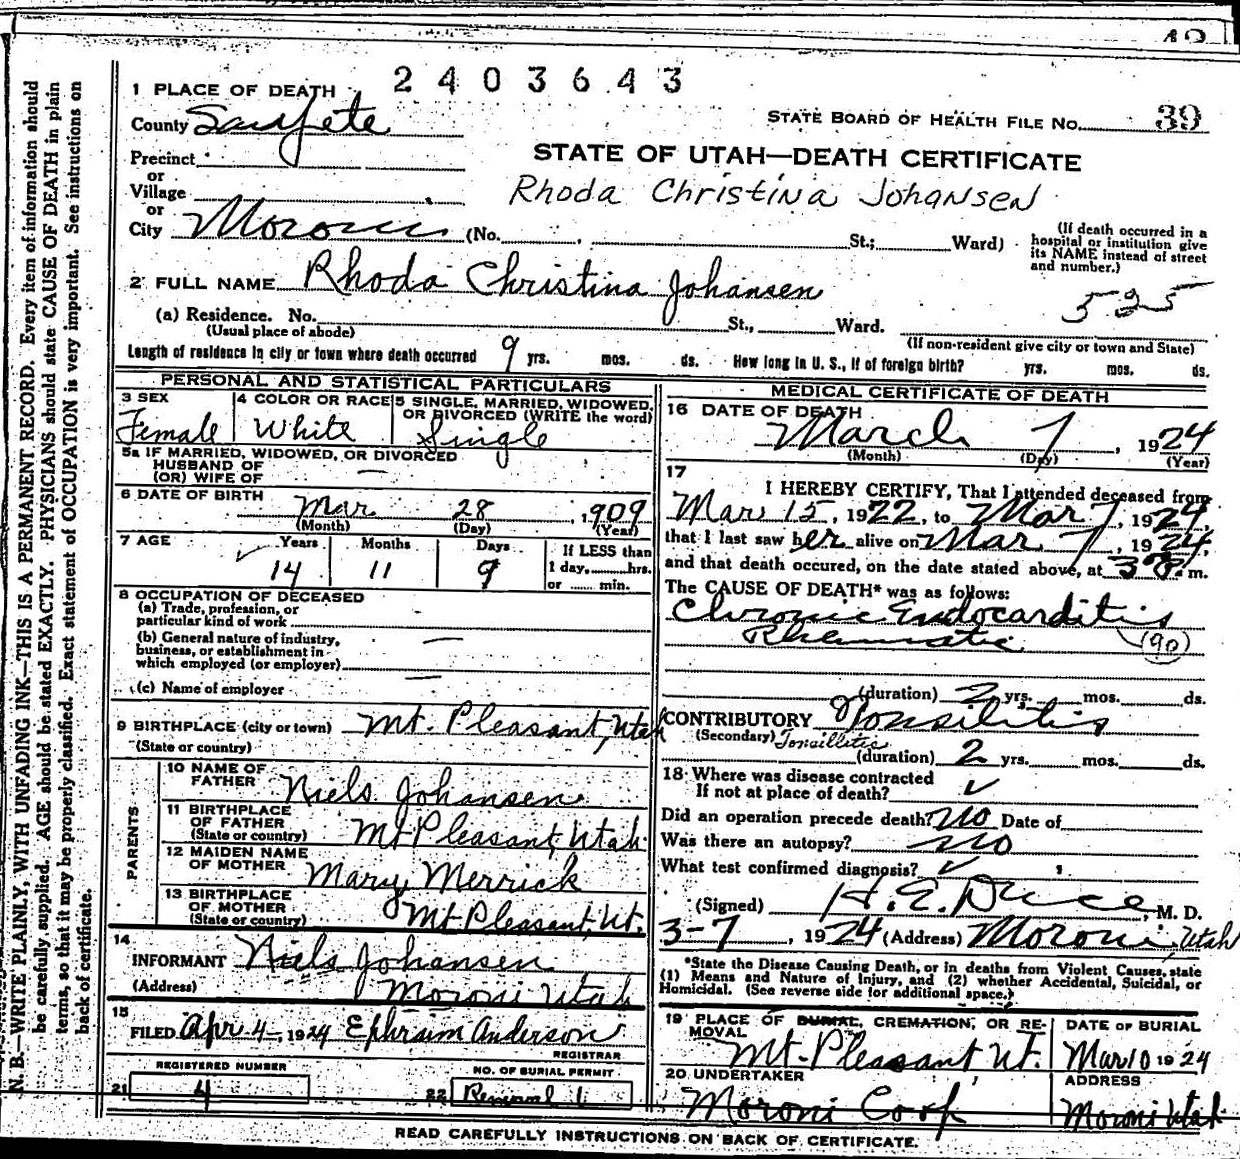 2403643
1 PLACE OF DEATH
County Sanpete
STATE BOARD OF HEALTH FILE No. 39
Precinct
or
Village
or
City Moroni (No. St.; Ward)
STATE OF UTAH—DEATH CERTIFICATE
Rhoda Christina Johansen
(If death occurred in a
hospital or institution give
its NAME instead of street
and number.)
2 FULL NAME Rhoda Christina Johansen
525
(a) Residence. No. St., Ward.
(Usual place of abode)
(If non-resident give city or town and State)
Length of residence in city or town where death occurred 9 yrs. mos. ds. How long in U. S., if of foreign birth? yrs. mos. ds.
PERSONAL AND STATISTICAL PARTICULARS
3 SEX
Female
4 COLOR OR RACE
White
5 SINGLE, MARRIED, WIDOWED,
OR DIVORCED (WRITE the word)
Single
5a IF MARRIED, WIDOWED, OR DIVORCED
HUSBAND OF
(OR) WIFE OF —
6 DATE OF BIRTH
Mar 28, 1909
(Month) (Day) (Year)
7 AGE
Years Months Days
14 11 9
If LESS than
1 day, hrs.
or min.
8 OCCUPATION OF DECEASED
(a) Trade, profession, or
particular kind of work —
(b) General nature of industry,
business, or establishment in
which employed (or employer) —
(c) Name of employer —
9 BIRTHPLACE (city or town) Mt. Pleasant, Utah
(State or country)
PARENTS
10 NAME OF
FATHER Niels Johansen
11 BIRTHPLACE
OF FATHER
(State or country) Mt Pleasant, Utah.
12 MAIDEN NAME
OF MOTHER Mary Merrick
13 BIRTHPLACE
OF MOTHER
(State or country) Mt Pleasant, Ut.
14
INFORMANT Niels Johansen
(Address) Moroni Utah
15
FILED Apr 4-, 1924 Ephraim Anderson
REGISTRAR
REGISTERED NUMBER
21 4
NO. OF BURIAL PERMIT
22 Removal 1
MEDICAL CERTIFICATE OF DEATH
16 DATE OF DEATH
March 7, 1924
(Month) (Day) (Year)
17
I HEREBY CERTIFY, That I attended deceased from
Mar 15, 1922, to Mar 7, 1924,
that I last saw her alive on Mar 7, 1924,
and that death occured, on the date stated above, at m.
The CAUSE OF DEATH* was as follows:
Chronic Endocarditis
Rheumatic (90)
(duration) 2 yrs. mos. ds.
CONTRIBUTORY Tonsilitis
(Secondary) Tonsillitis
(duration) 2 yrs. mos. ds.
18 Where was disease contracted
If not at place of death? ✓
Did an operation precede death? No Date of
Was there an autopsy? no
What test confirmed diagnosis? ✓
(Signed) H. E. Dice, M. D.
3-7, 1924 (Address) Moroni, Utah
*State the Disease Causing Death, or in deaths from Violent Causes, state
(1) Means and Nature of Injury, and (2) whether Accidental, Suicidal, or
Homicidal. (See reverse side for additional space.)
19 PLACE OF BURIAL, CREMATION, OR RE-
MOVAL
Mt. Pleasant Ut.
DATE OF BURIAL
Mar 10 1924
20 UNDERTAKER
Moroni Coop
ADDRESS
Moroni Utah
READ CAREFULLY INSTRUCTIONS ON BACK OF CERTIFICATE.
N. B.—WRITE PLAINLY, WITH UNFADING INK—THIS IS A PERMANENT RECORD. Every item of information should
be carefully supplied. AGE should be stated EXACTLY. PHYSICIANS should state CAUSE OF DEATH in plain
terms, so that it may be properly classified. Exact statement of OCCUPATION is very important. See instructions on
back of certificate.